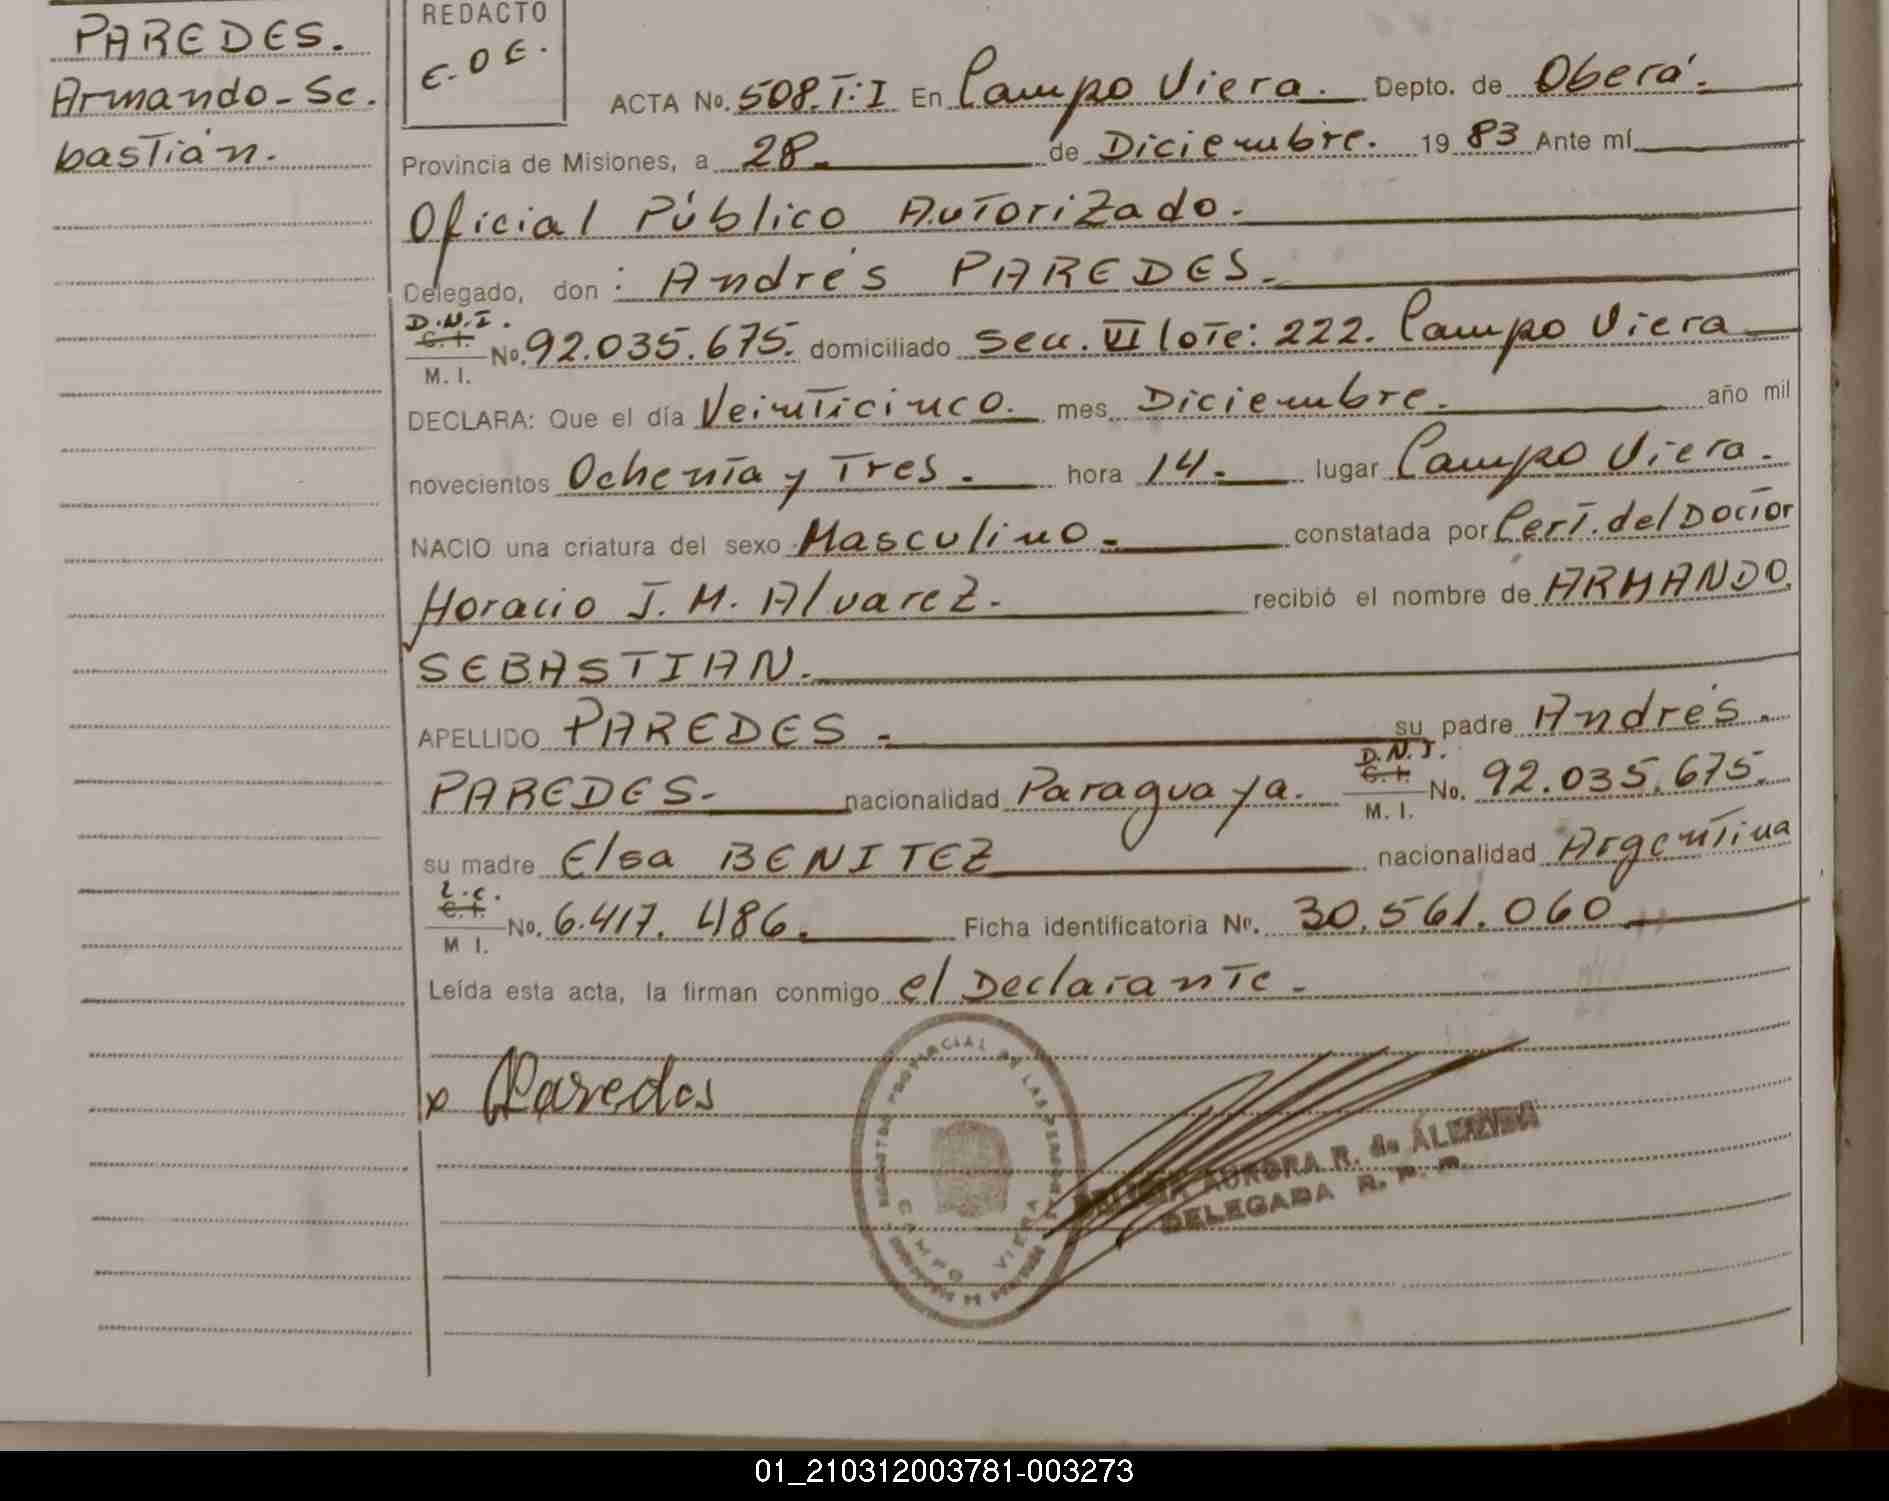 PAREDES.
Armando-Se.
bastián.
REDACTO
E. O E.
ACTA No. 508. T: I En Campo Viera. Depto. de Oberá.
Provincia de Misiones, a 28. de Diciembre. 19 83 Ante mí
Oficial Público Autorizado.
Delegado, don: Andrés PAREDES.
D.N.I.
C. I.
M. I.
No. 92.035.675. domiciliado Secc. VI lote: 222. Campo Viera
DECLARA: Que el día Veinticinco. mes Diciembre. año mil
novecientos Ochenta y Tres. hora 14. lugar Campo Viera.
NACIO una criatura del sexo Masculino. constatada por Cert. del Doctor
Horacio J. M. Alvarez. recibió el nombre de ARMANDO
SEBASTIAN.
APELLIDO PAREDES. su padre Andrés.
PAREDES. nacionalidad Paraguaya. D.N.I. C. I. M. I. No. 92.035.675.
su madre Elsa BENITEZ nacionalidad Argentina
L.C.
C. I.
M I.
No. 6.417.486. Ficha identificatoria No. 30.561.060
Leída esta acta, la firman conmigo el Declarante.
x Paredes
REGISTRO PROVINCIAL DE LAS PERSONAS
CAMPO VIERA
AURORA R. de ALMEIDA
DELEGADA R. P. P.
01_210312003781-003273